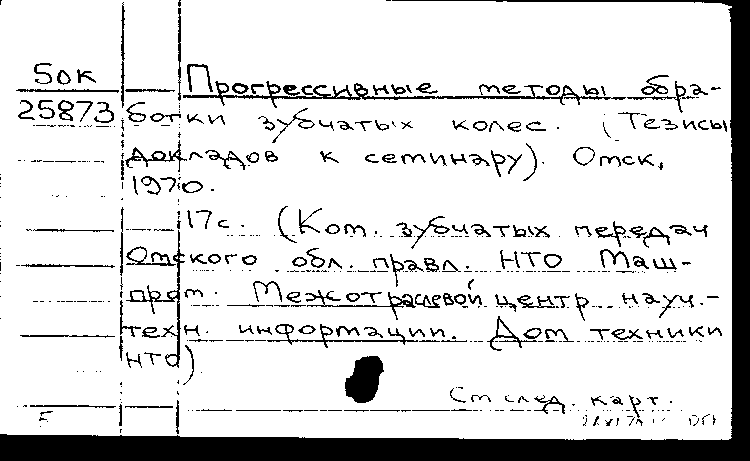 5ок
25873
Прогрессивные методы обра-
ботки зубчатых колес. (Тезисы
докладов к семинару). Омск,
1970.
17с. (Ком. зубчатых передач
Омского обл. правл. НТО Маш-
пром. Межотраслевой центр науч.-
техн. информации. Дом техники
НТО)
См след. карт.